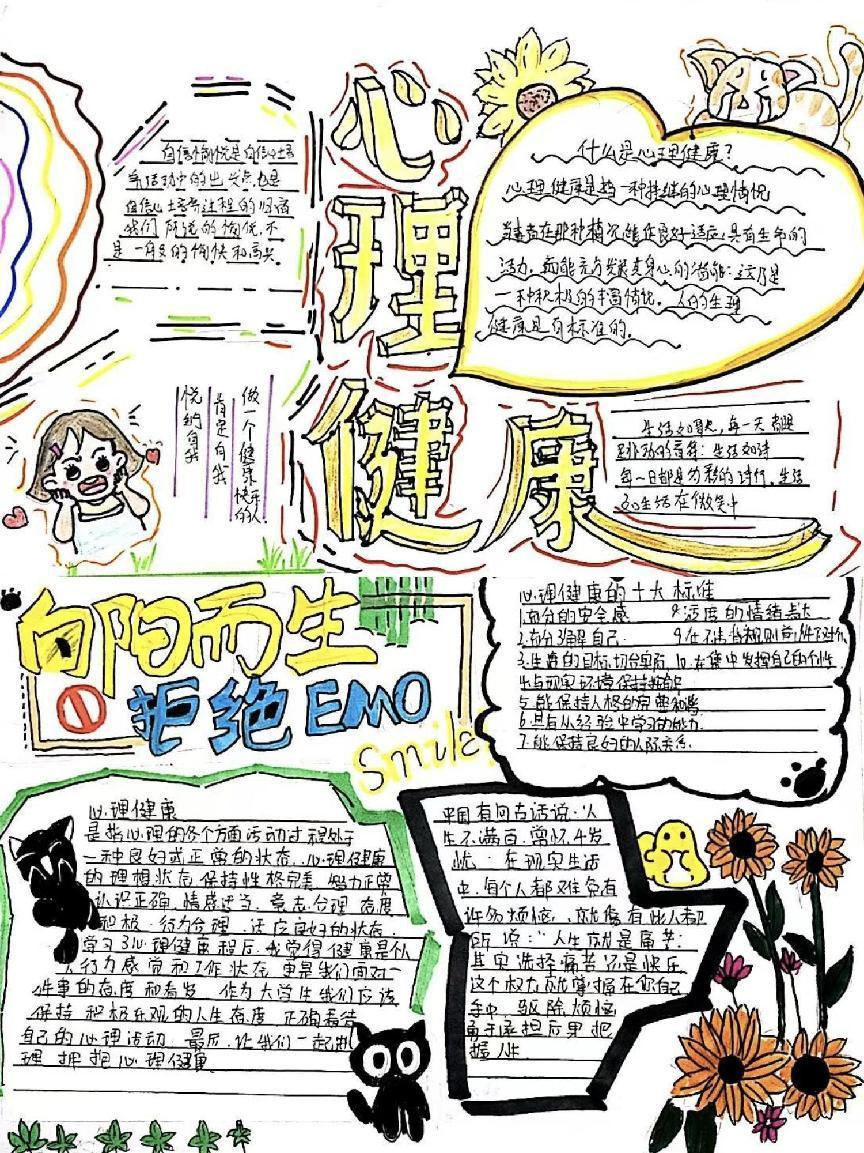 心理健康
自信愉悦是自信心培
养活动中的出发点,也是
自信心培养过程的归宿
我们所说的愉悦,不
是一般的愉快和高兴
什么是心理健康?
心理健康是指一种持续的心理情况
当事者在那种情况能作良好适应,具有生命的
活力,而能充分发展其身心的潜能:这乃是
一种积极的丰富情况。人的生理
健康是有标准的。
做一个健康快乐的人
肯定自我
悦纳自我
生活如
每一日都是
向阳而生
拒绝EMO
Smile
心理健康的十大标准
1.充分的安全感
2.充分了解自己
3.生活的目标切合实际
4.与现实环境保持接触
5.能保持人格的完整和谐
6.具有从经验中学习的能力
7.能保持良好的人际关系
8.适度的情绪表达
心理健康
是指心理的各个方面活动过程处于
一种良好或正常的状态.心理健康
的理想状态保持性格完美、智力正常
认识正确、情感适当、意志合理、态度
积极、行为合理、适应良好的状态.
学习了心理健康课程后,我觉得健康是个
人行为感觉和工作状态,更是我们面对一
件事的态度和看法,作为大学生我们应该
保持积极乐观的人生态度,正确看待
自己的心理活动.最后,让我们一起
理 拥抱心理健康
中国有句古话说:"人
生不满百,常怀千岁
忧".在现实生活
中,每个人都难免有
许多烦恼,就像有些人都
所说:"人生就是痛苦"
其实选择痛苦还是快乐
这个权力就掌握在你自己
手中,驱除烦恼
勇于承担后果把
握人生